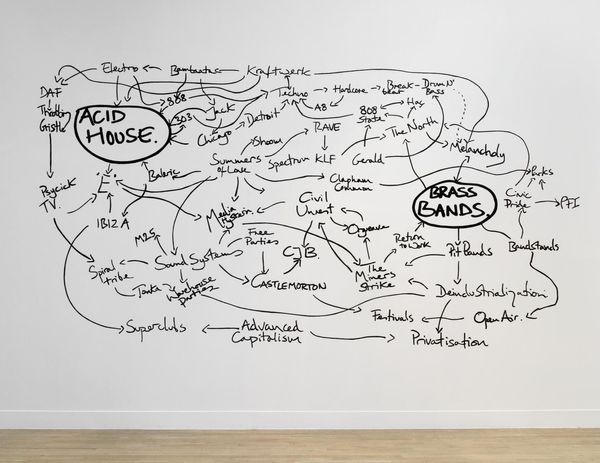 Electro
Bambaataa
Kraftwerk
DAF
Throbbing
Gristle
ACID
HOUSE.
808
303
Jack
Chicago
Detroit
Techno
Hardcore
A8
Break
beat
Drum N'
Bass
808
State
Hag
The North
Melancholy
Shoom
RAVE
Spectrum
KLF
Gerald
Summers
of Love
Clapham
Common
Balaric
'E'
Psychick
TV.
IBIZA
BRASS
BANDS.
Parks
Civic
Pride
PFI
Bandstands
Media
Hysteria
Civil
Unrest
Orgreave
Free
Parties
C.J.B.
M25
Sound Systems
Spiral
tribe
Tonka
Warehouse
Parties
CASTLEMORTON
The
Miners
Strike
Return
to Work
Pit Bands
Deindustrialization
Festivals
Open Air.
Superclubs
Advanced
Capitalism
Privatisation